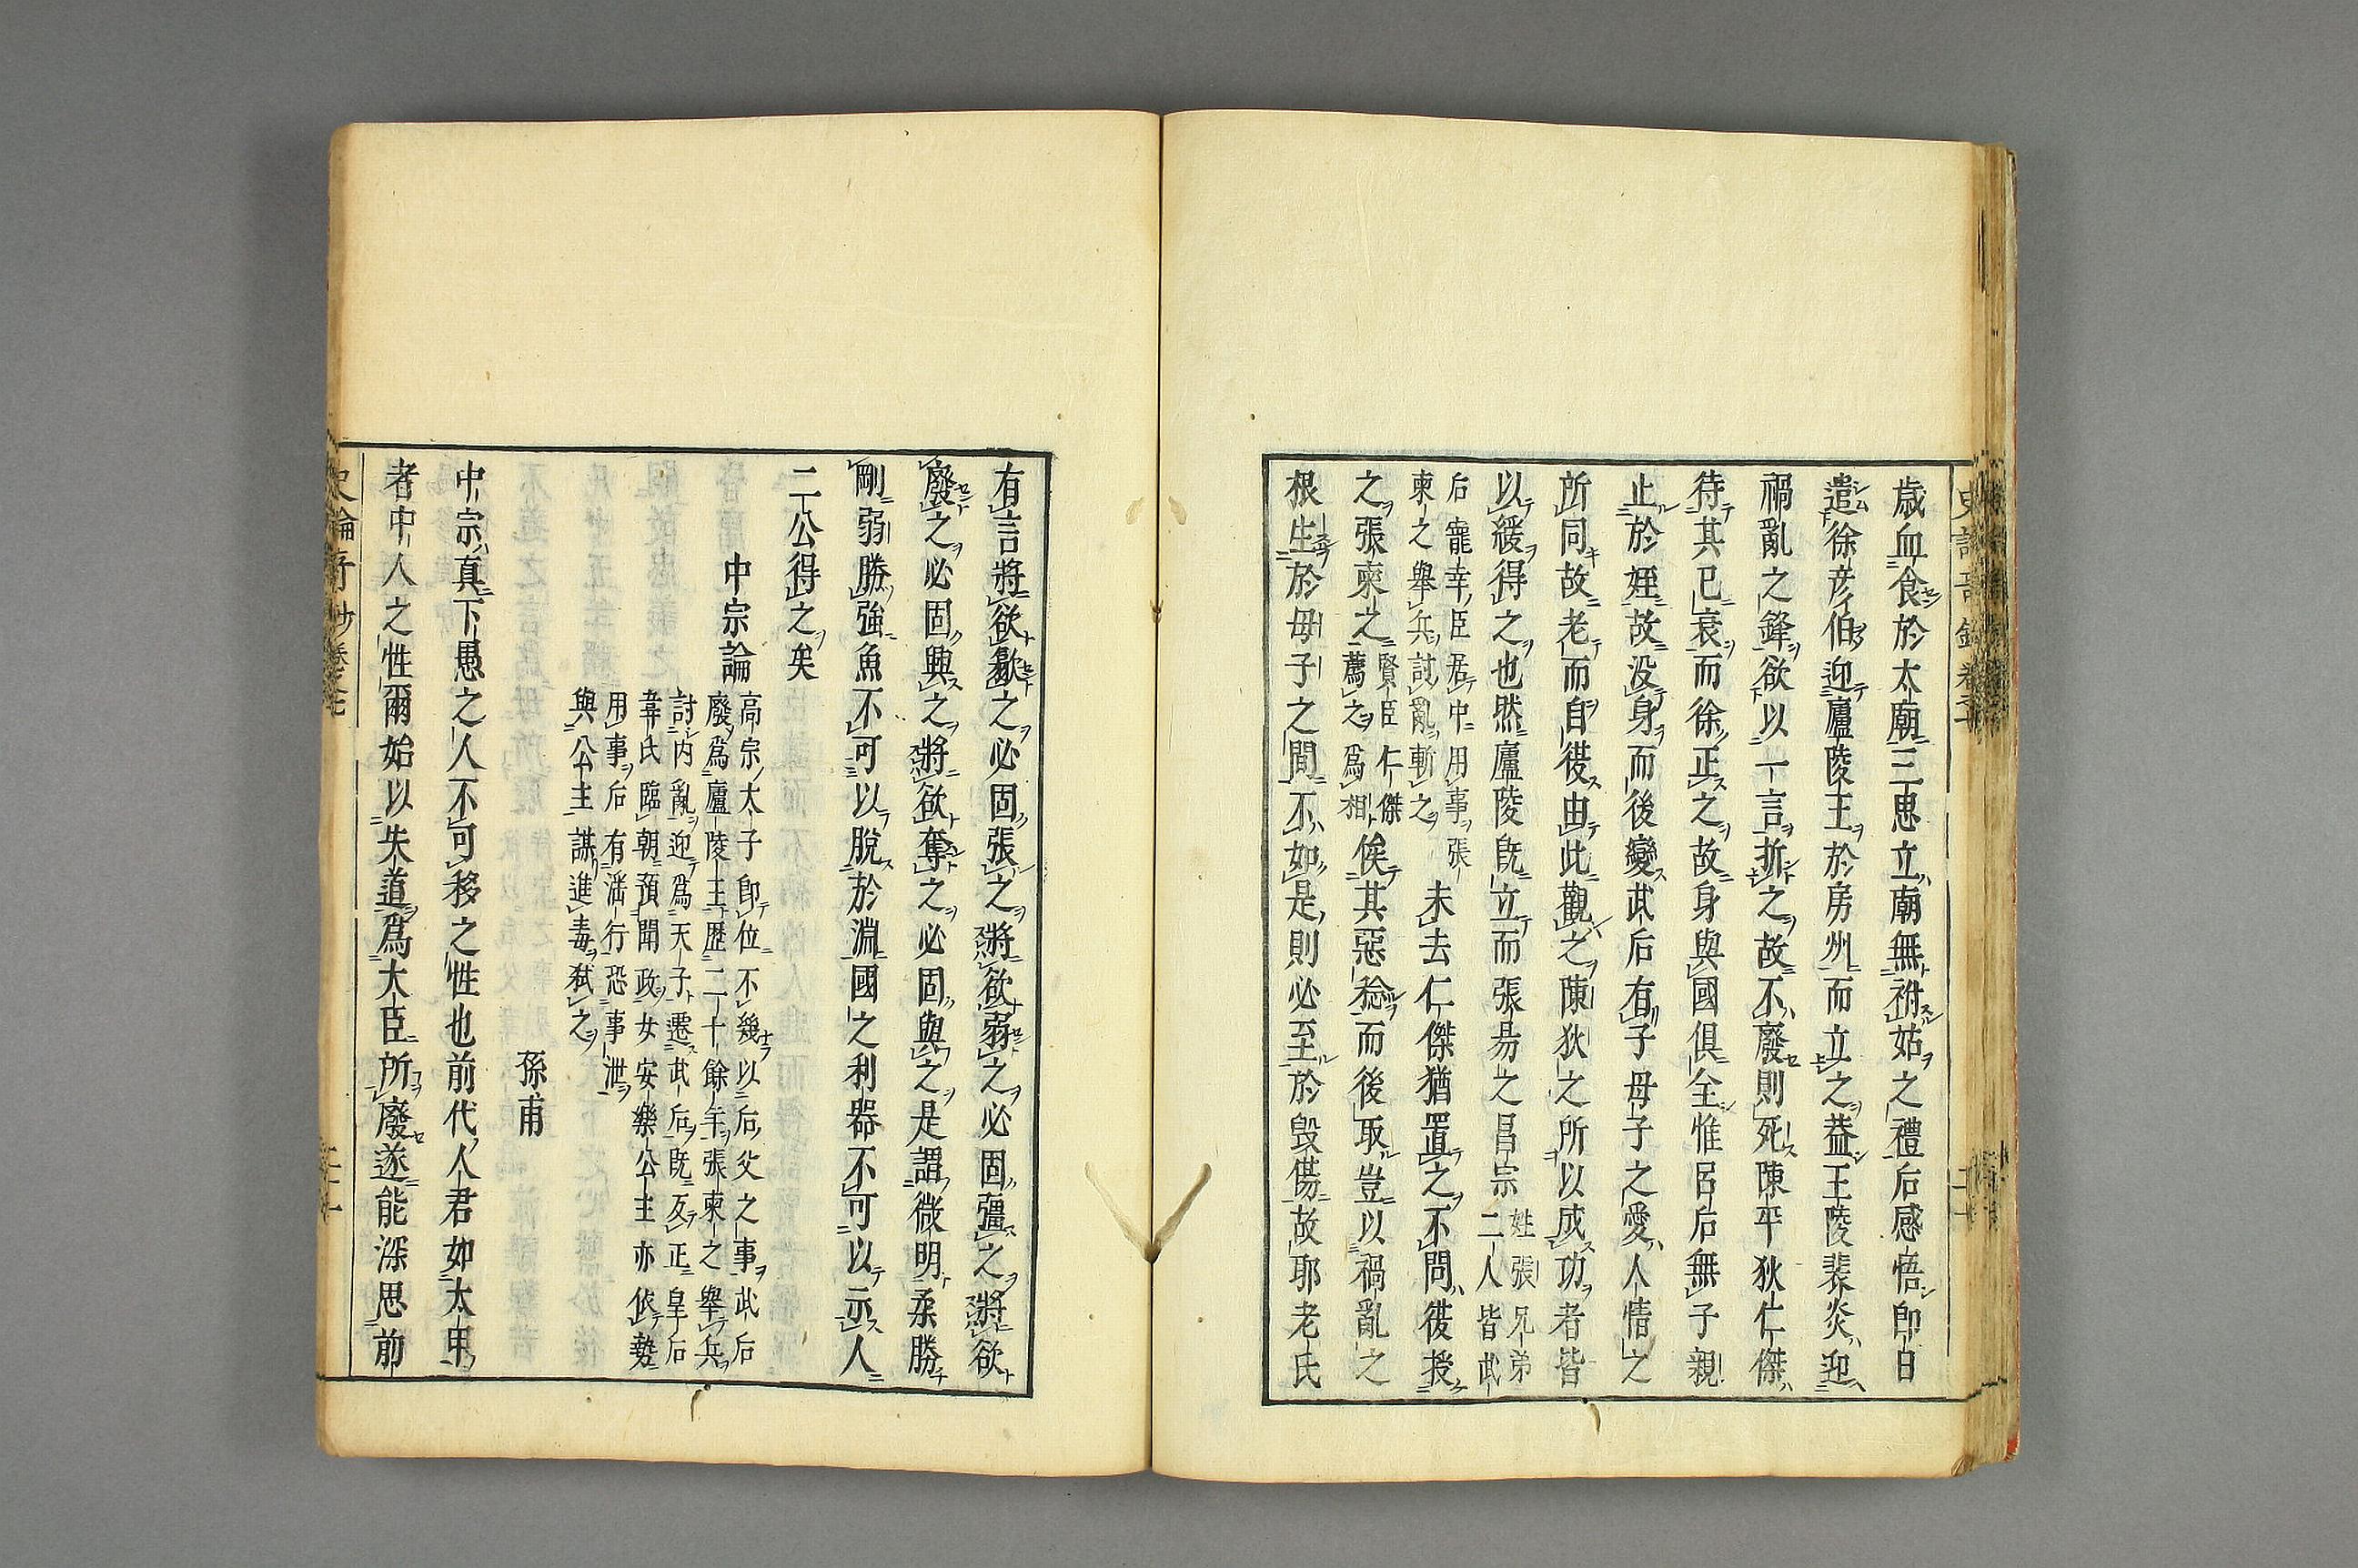 歲血食於太廟三思立廟無祔姑之禮后感悟即日
遣徐彦伯迎廬陵王於房州而立之葢王陵裴炎迎
禍亂之鋒欲以一言折之故不廢則死陳平狄仁傑
待其已衰而徐正之故身與國俱全惟呂后無子親
止於姪故没身而後變武后有子母子之愛人情之
所同故老而自從由此觀之陳狄之所以成功者皆
以緩得之也然廬陵既立而張易之昌宗姓張兄弟二人皆武
后寵幸臣居中用事張柬之舉兵討亂斬之未去仁傑猶置之不問復授
之張柬之賢臣仁傑薦之爲相俟其惡稔而後取豈以禍亂之
根生於母子之間不如是則必至於毀傷故耶老氏
有言將欲歙之必固張之將欲弱之必固彊之將欲
廢之必固興之將欲奪之必固與之是謂微明柔勝
剛弱勝強魚不可以脫於淵國之利器不可以示人
二公得之矣
中宗論
高宗太子即位不幾以后父之事武后
廢爲廬陵王歷二十餘年張柬之舉兵
討内亂迎爲天子遷武后既反正皇后
韋氏臨朝預聞政女安樂公主亦依勢
用事后有潘行恐事泄
與公主謀進毒弒之
孫甫
中宗真下愚之人不可移之性也前代人君如太甲
者中人之性爾始以失道爲大臣所廢遂能深思前